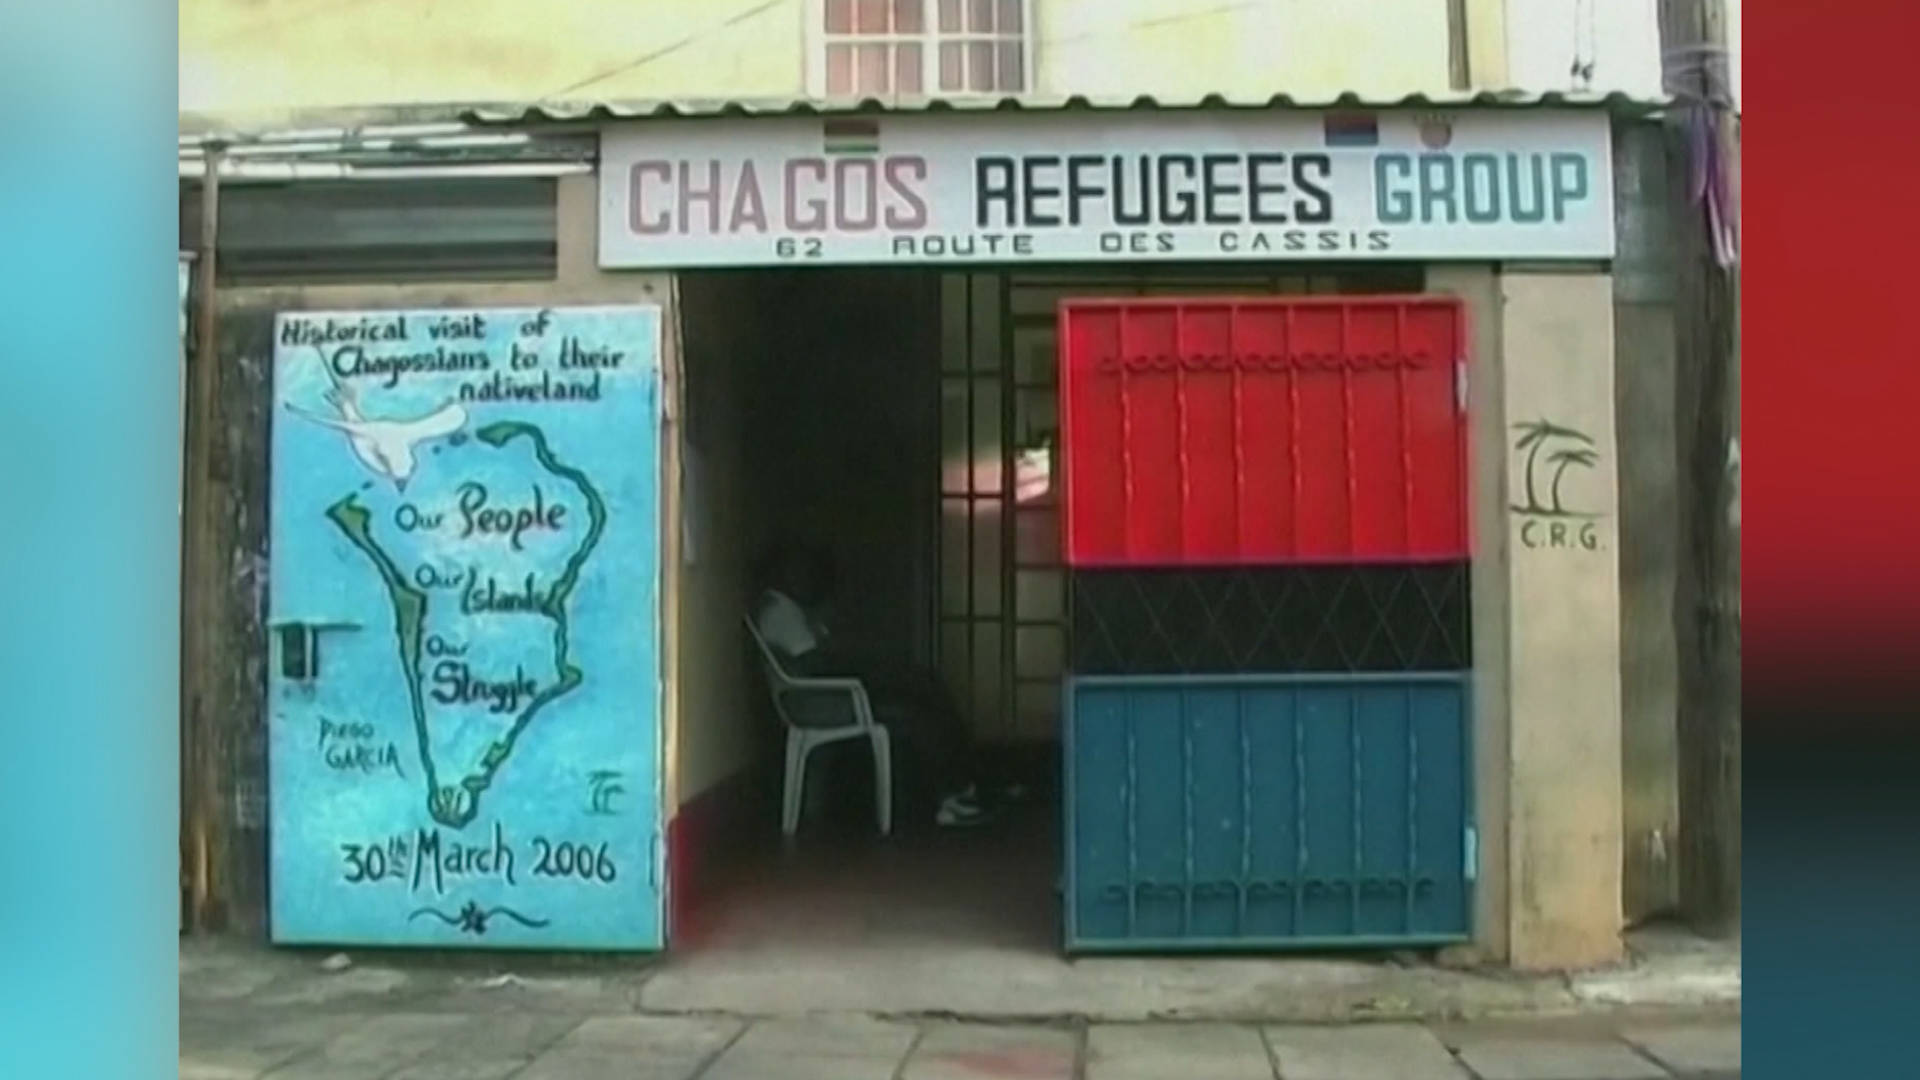 CHAGOS REFUGEES GROUP
62 ROUTE DES CASSIS
Historical visit of
Chagossians to their
nativeland
Our People
Our Islands
Our
Struggle
DIEGO
GARCIA
30th March 2006
C.R.G.